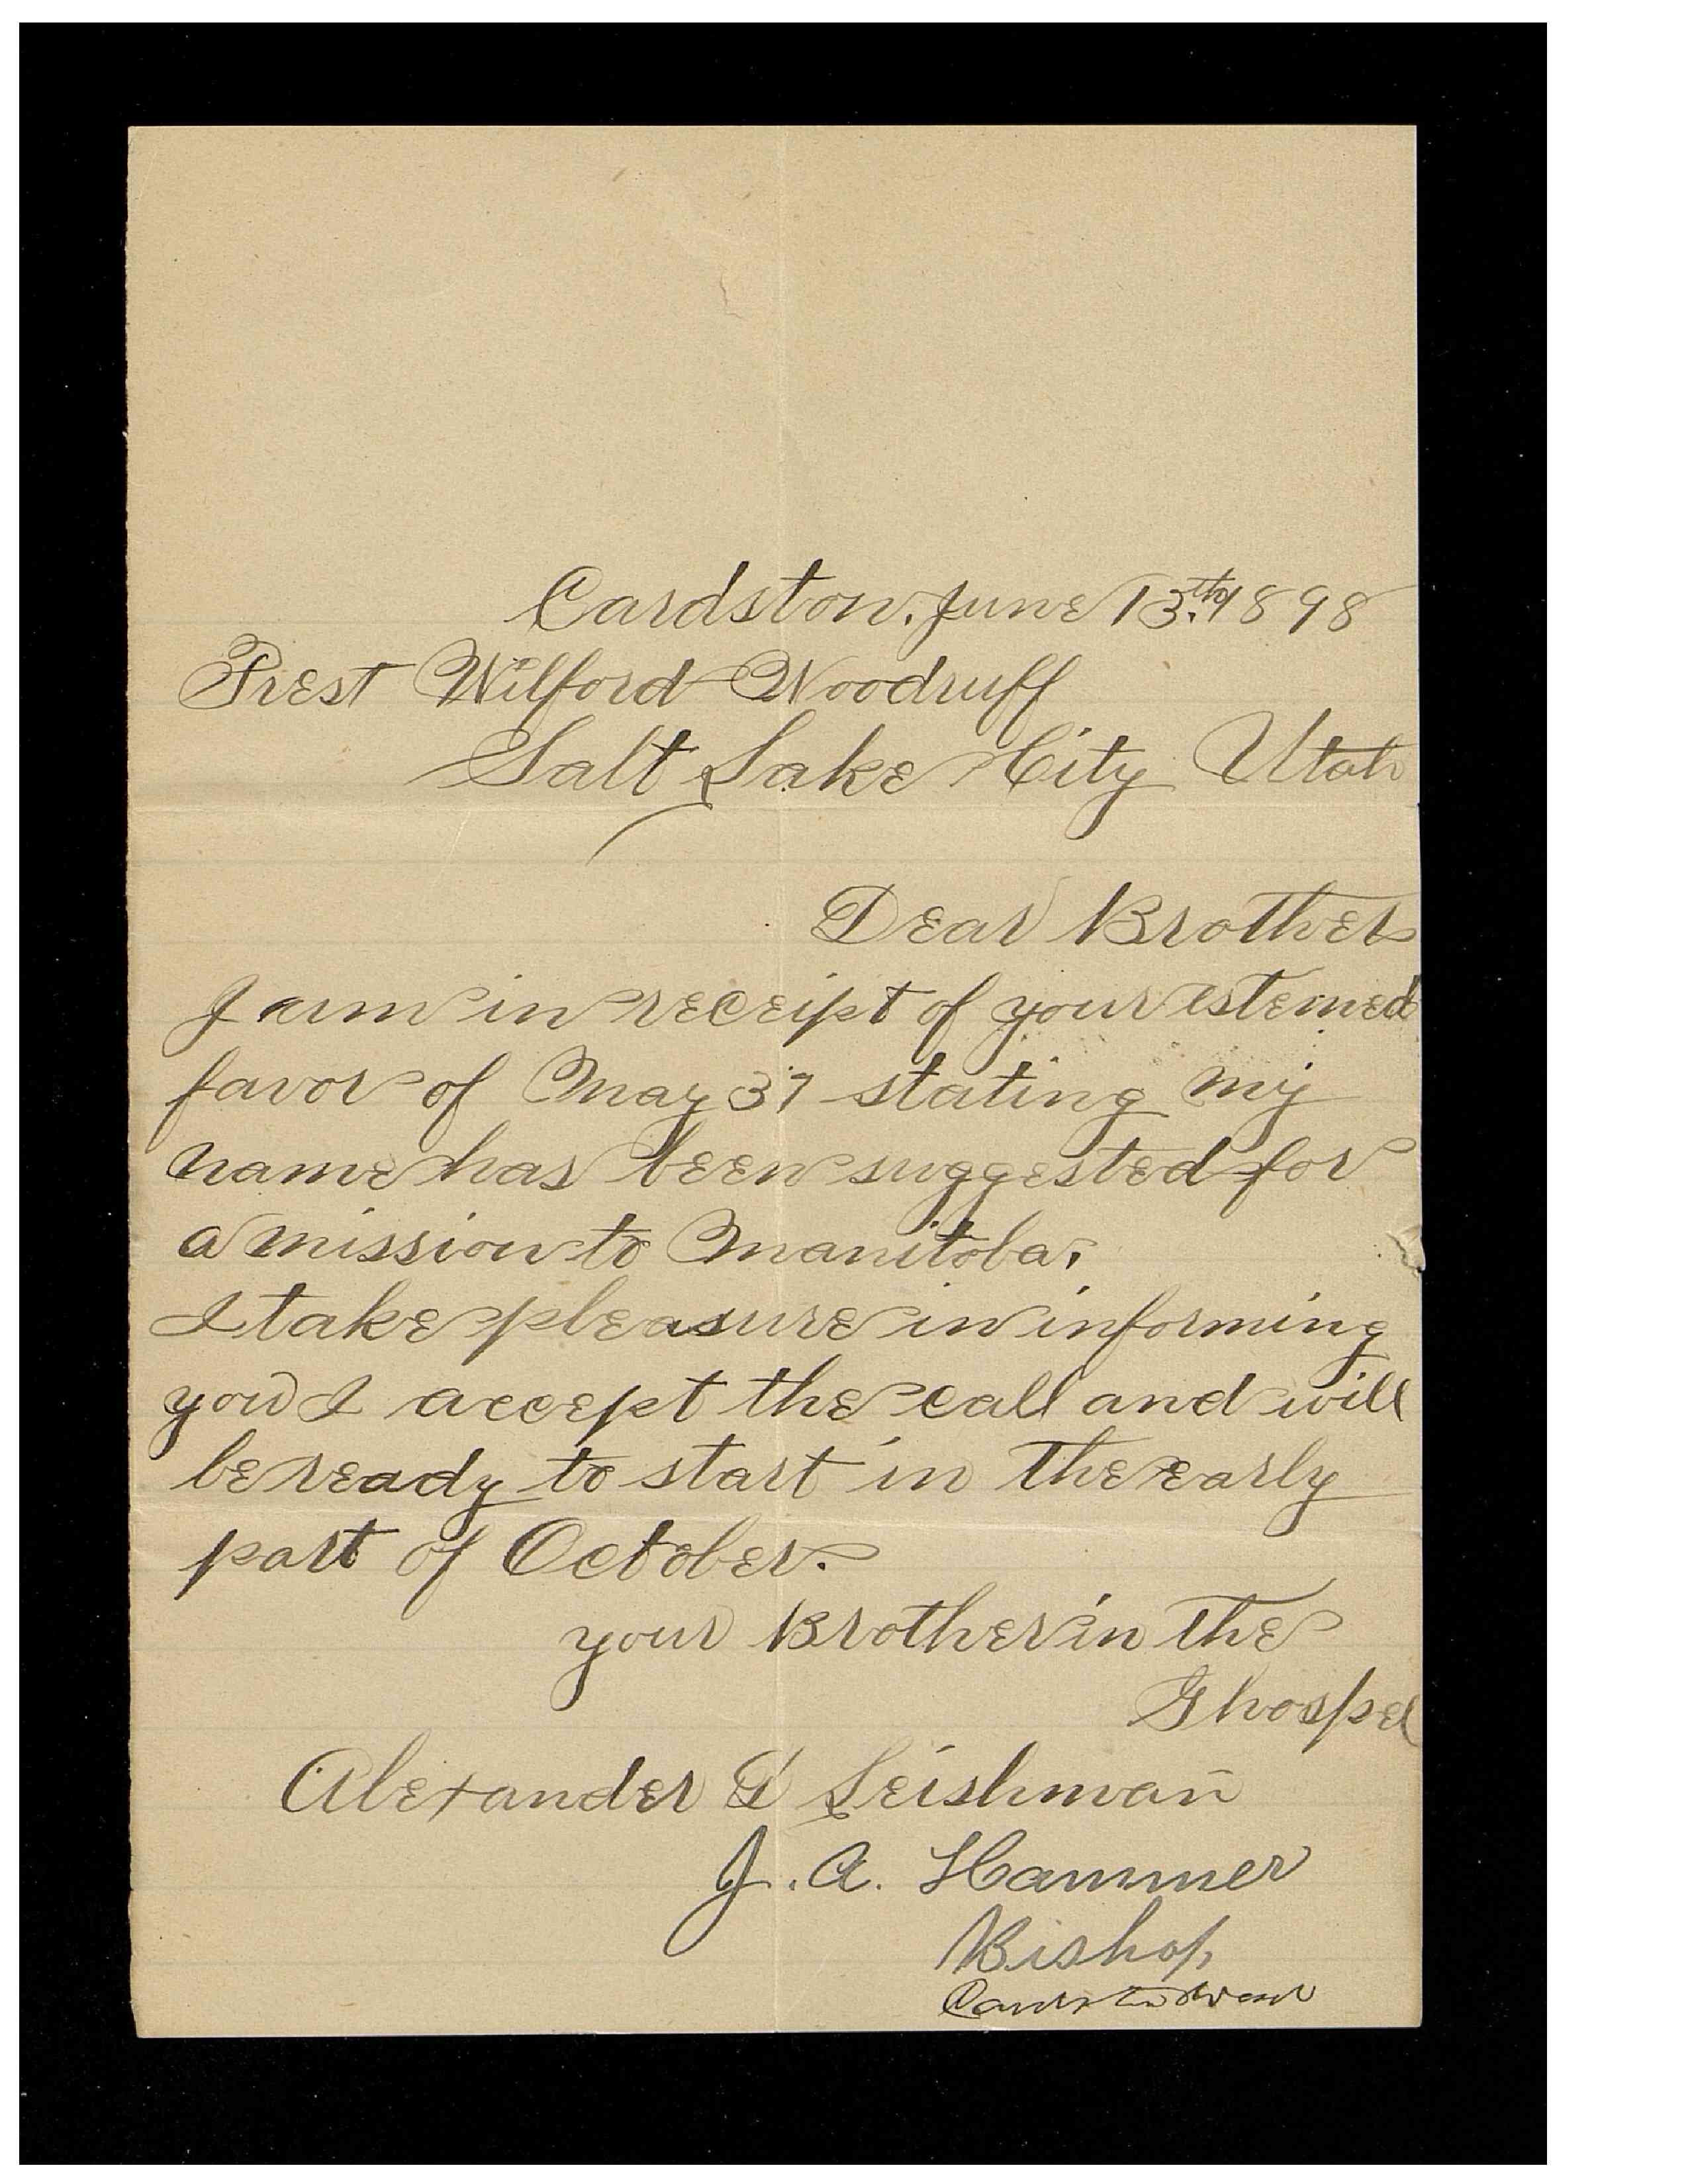 Cardston. June 13.th 1898
Prest Wilford Woodruff
Salt Lake City Utah
Dear Brother
I am in receipt of your estemed
favor of May 31 stating my
name has been suggested for
a mission to Manitoba.
I take pleasure in informing
you I accept the call and will
be ready to start in the early
part of October.
your Brother in the
Ghospel
Alexander D Leishman
J. A. Hammer
Bishop
Cardston Ward